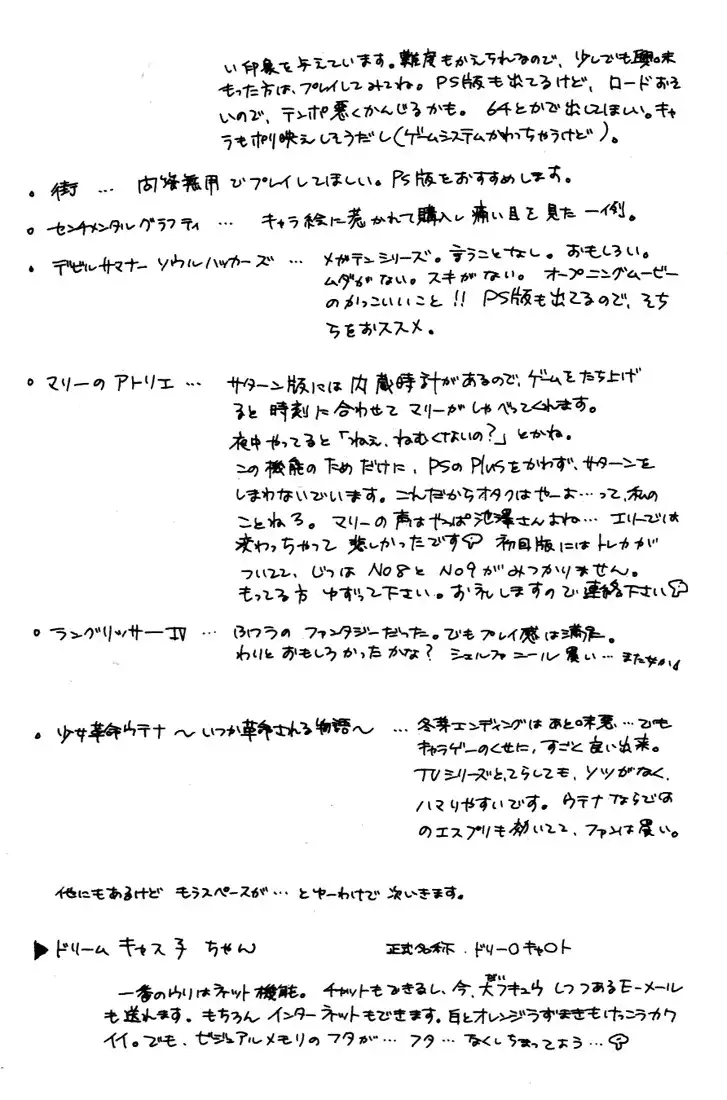 い印象を与えています。難度もかえられるので、少しでも興味
もった方は、プレイしてみてね。PS版も出てるけど、ロードおそ
いので、テンポ悪くかんじるかも。64とかで出してほしい。キャ
ラもポリ映えしそうだし(ゲームシステムかわっちゃうけど)。
。街 … 問答無用でプレイしてほしい。PS版をおすすめします。
。センチメンタルグラフティ … キャラ絵に惹かれて購入し痛い目を見た一例。
。デビルサマナー ソウルハッカーズ … メガテンシリーズ。言うことなし。おもしろい。
ムダがない。スキがない。オープニングムービー
のかっこいいこと!! PS版も出てるので、そち
らをおススメ。
。マリーのアトリエ … サターン版には内蔵時計があるので、ゲームをたち上げ
ると時刻に合わせてマリーがしゃべってくれます。
夜中やってると「ねえ、ねむくないの?」とかね。
この機能のためだけに、PSのPlusをかわず、サターンを
しまわないでいます。これだからオタクはやーよ…って、私の
ことねろ。マリーの声はやっぱ池澤さんよね… エリーでは
変わっちゃって悲しかったです 初回版にはトレカが
ついてて、じつはNo8とNo9がみつかりません。
もってる方ゆずって下さい。お礼しますので連絡下さい
。ラングリッサーⅣ … BWラのファンタジーだった。でもプレイ感は満足。
わりとおもしろかったかな? シェルファニール買い…
。少女革命ウテナ ～いつか革命される物語～ … 冬芽エンディングはあと味悪…でも
キャラゲーのくせに、すごと良い出来。
TVシリーズとてらしても、ソツがなく、
ハマりやすいです。ウテナならでは
のエスプリも効いてて、ファンは買い。
他にもあるけどもうスペースが… とゆーわけで次いきます。
▶ドリームキャス子ちゃん 正式名称・ドリー○キャ○ト
一番のウリはネット機能。チャットもできるし、今、大ブキュウしつつあるE-メール
も送れます。もちろんインターネットもできます。白とオレンジうずまきもけっこうカワ
イイ。でも、ビジュアルメモリのフタが… フタ… なくしちまってよう…